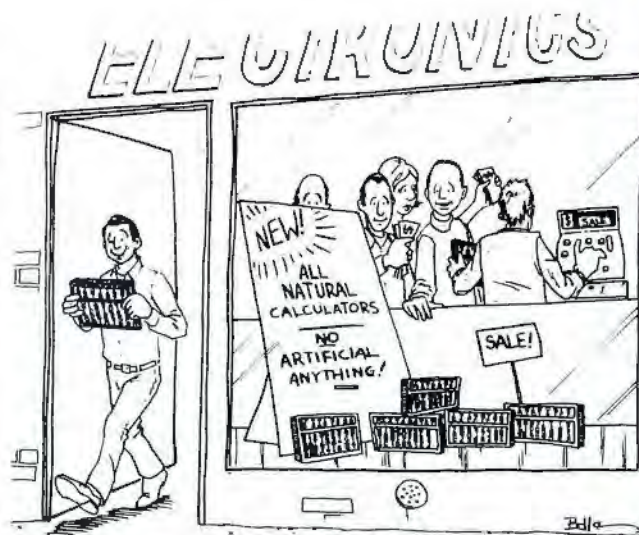 ELECTRONICS
NEW!
ALL
NATURAL
CALCULATORS
NO
ARTIFICIAL
ANYTHING!
$ SALE
SALE!